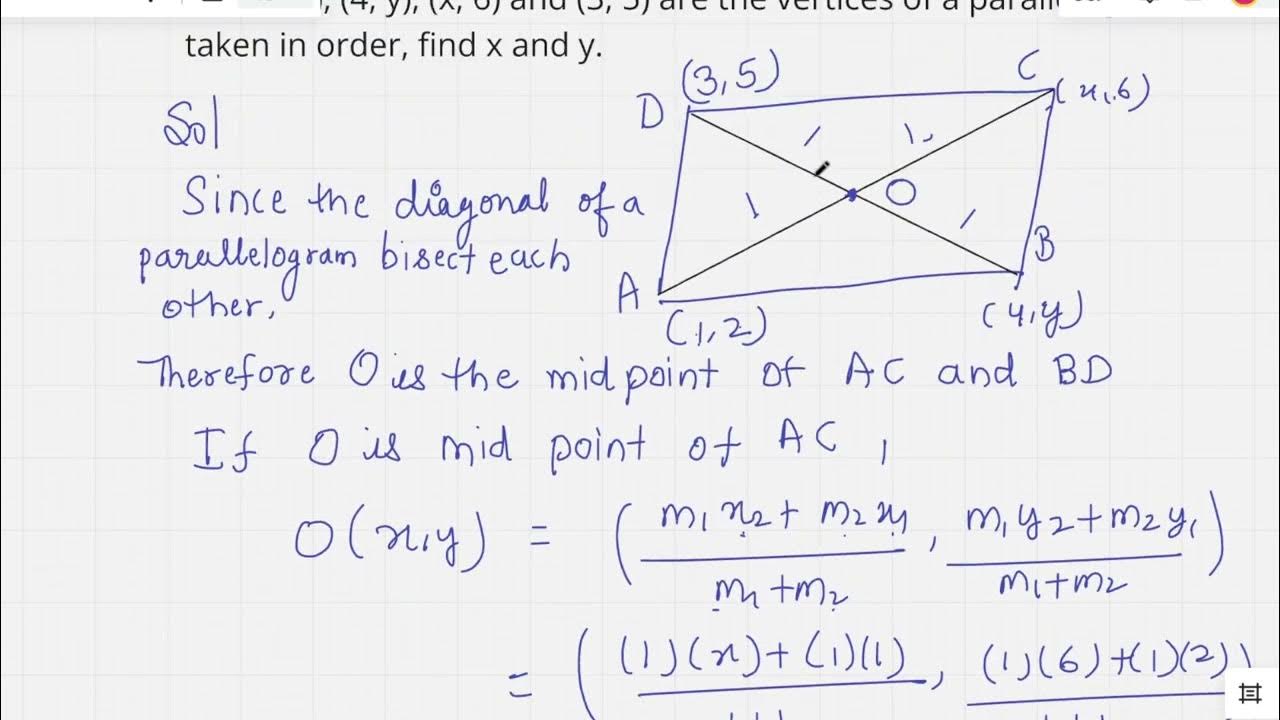 , (4, y), (x, 6) and (3, 5) are the vertices of a
taken in order, find x and y.
(3, 5)
C
D
(x, 6)
Sol
O
Since the diagonal of a
B
parallelogram bisect each
A
other,
(1, 2)
(4, y)
Therefore O is the mid point of AC and BD
If O is mid point of AC ,
O(x, y) = ( m₁x₂ + m₂x₁ / m₁ + m₂ , m₁y₂ + m₂y₁ / m₁ + m₂ )
= ( (1)(x) + (1)(1) , (1)(6) + (1)(2) )